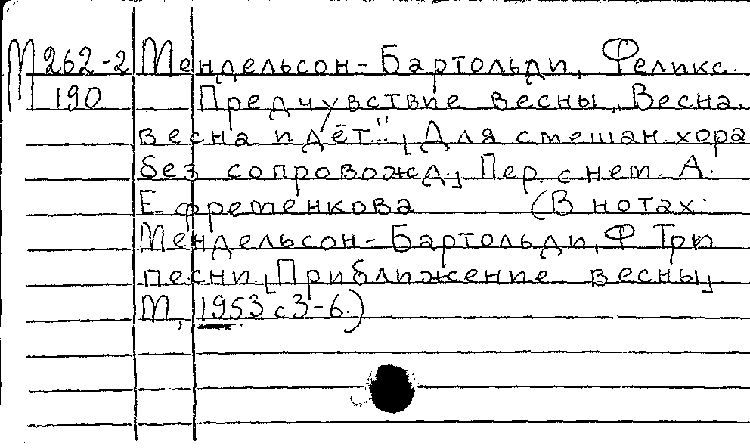 М 262-2 Мендельсон-Бартольди, Феликс.
190 Предчувствие весны „Весна,
весна идёт", [Для смешан. хора
без сопровожд.] Пер. с нем. А.
Ефременкова (В нотах:
Мендельсон-Бартольди, Ф. Три
песни [Приближение весны]
М., 1953 с 3-6.)